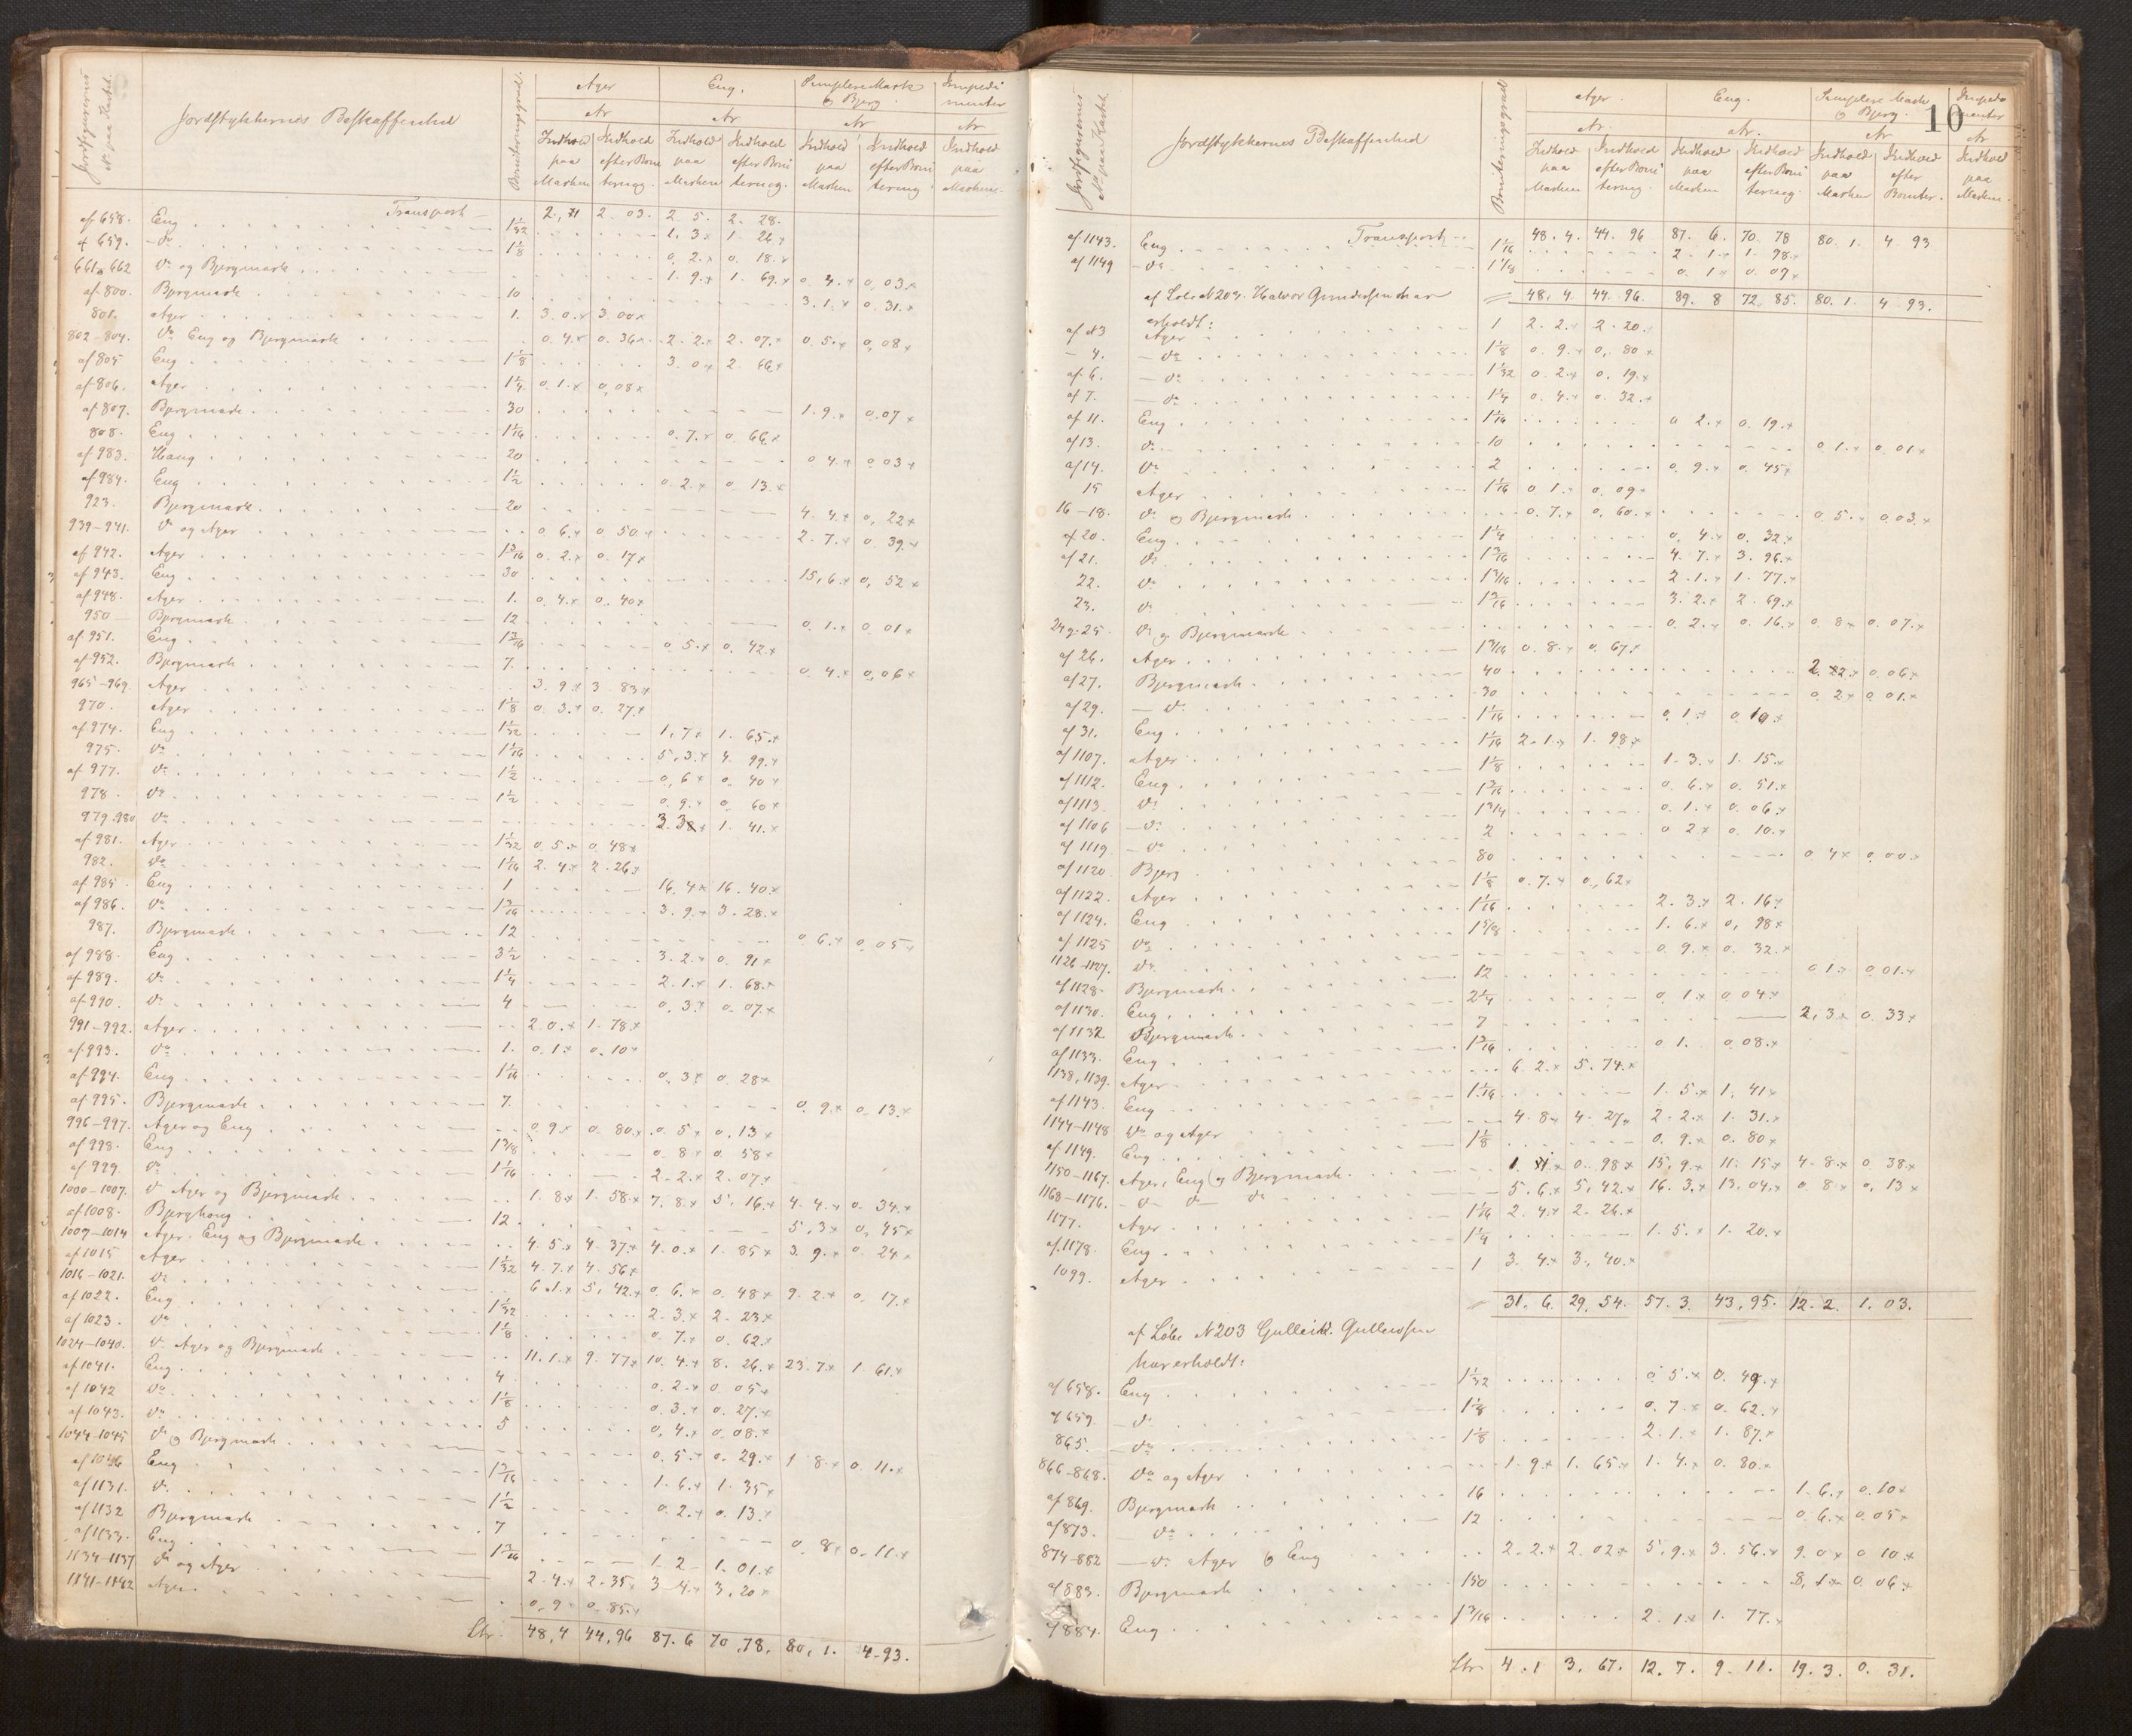 Jordfigurernes
No paa Kartet.
Jordstykkernes Beskaffenhed
Boniteringsgrad.
Ager Eng. Simplere Mark og Bjerg. Impedi-menter
Ar Ar Ar Ar
Indhold paa Marken Indhold efter Bonitering. Indhold paa Marken Indhold efter Bonitering. Indhold paa Marken Indhold efter Bonitering. Indhold paa Marken.
Transport 2, 71 2. 03. 2 5. 2. 28.
af 658. Eng 1 1/32 1. 3x 1. 26x
af 659. do 1 1/8 0. 2.x 0. 18.x
661a662 do og Bjergmark 1. 9.x 1. 69.x 0 4.x 0,03x
af 800. Bjergmark 10 3. 1.x 0. 31.x
801. Ager 1. 3. 0.x 3. 00x
802-804. do Eng og Bjergmark 0. 4.x 0. 36x 2. 2.x 2. 07.x 0. 5.x 0,08x
af 805 Eng 1 1/8 3. 0x 2. 66x
af 806. Ager 1 1/4. 0. 1.x 0,08x
af 807. Bjergmark 30 1. 9.x 0.07x
808. Eng 1 1/16 0. 7.x 0. 66.x
af 983. Haug 20 0 4.x 0 03x
af 984. Eng 1 1/2 0. 2.x 0. 13.x
923. Bjergmark 20 4. 4.x 0, 22x
939-941. do og Ager 0 6.x 0. 50.x 2. 7.x 0. 39.x
af 942. Ager 1 3/16 0. 2.x 0. 17x
af 943. Eng 30 15, 6.x 0, 52x
af 948. Ager 1. 0. 4.x 0. 40x
950 Bjergmark 12 0. 1.x 0. 01x
af 951. Eng 1 3/16 0 5.x 0. 42.x
af 952. Bjergmark 7. 0. 4.x 0,06x
965-969. Ager 3. 9.x 3 83x
970. Ager 1 1/8 0. 3.x 0. 27.x
af 974. Eng 1 1/32 1, 7x 1. 65.x
975. do 1 1/16 5, 3.x 4. 99.x
af 977. do 1 1/2 0, 6x 0. 40x
978. do 1 1/2 0. 9.x 0. 60x
979.980 do 3. 38x 1. 41.x
af 981. Ager 1 1/32 0. 5.x 0. 48x
982. do 1 1/16 2. 4x 2. 26x
af 985. Eng 1 16. 4x 16. 40.x
af 986. do 1 3/16 3. 9.x 3. 28.x
987. Bjergmark 12 0 6.x 0,05x
af 988. Eng 3 1/2 3. 2.x 0. 91x
af 989. do 1 1/4 2. 1.x 1. 68.x
af 990. do 4 0. 3x 0. 07.x
991-992. Ager 2. 0.x 1. 78.x
af 993. do 1. 0. 1x 0. 10x
af 994. Eng 1 1/16 0. 3x 0. 28x
af 995. Bjergmark 7. 0. 9.x 0. 13.x
996-997. Ager og Eng 0 9.x 0. 80.x 0. 5x 0, 13x
af 998. Eng 1 3/8 0. 8x 0. 58x
af 999. do 1 1/16 2. 2.x 2. 07.x
1000-1007. do Ager og Bjergmark 1. 8x 1. 58x 7, 8.x 5, 16.x 4. 4.x 0. 34.x
af 1008. Bjerghaug 12. 5, 3x 0, 45x
1009-1014 Ager. Eng og Bjergmark 4. 5.x 4. 37x 4. 0.x 1. 85x 3. 9.x 0. 24x
af 1015 Ager 1 1/32 4. 7.x 4. 56x
1016-1021. do 6 1.x 5, 42.x 0. 6.x 0. 48x 9. 2.x 0. 17.x
af 1022. Eng 1 1/32 2. 3.x 2. 23x
af 1023. do 1 1/8 0. 7.x 0. 62x
1024-1040. do Ager og Bjergmark 11. 1.x 9. 77x 10. 4.x 8. 26.x 23. 7.x 1. 61.x
af 1041. Eng 4 0. 2.x 0. 05x
af 1042 do 1 1/8 0. 3.x 0. 27.x
af 1043. do 5 0, 4.x 0. 08.x
1044-1045 do og Bjergmark 0. 5.x 0. 29.x 1 8.x 0. 11.x
af 1046 Eng 1 3/16 1. 6.x 1. 35x
af 1131. do 1 1/2 0. 2.x 0. 13.x
af 1132 Bjergmark 7 0. 8x 0. 11.x
af 1133. Eng 1 3/16 1. 2 1. 01.x
1134-1137 do og Ager 2. 4.x 2. 35x 3. 4.x 3, 20x
1141-1142 Ager 0, 9 0. 85.x
Ltr. 48,4 44,96 87.6 70,78. 80,1. 4.93.
10
Jordfigurernes
No paa Kartet
Jordstykkernes Beskaffenhed
Boniteringsgrad
Ager. Eng. Simplere Mark og Bjerg. Impedimenter
Ar. Ar. Ar Ar
Indhold paa Marken Indhold efter Bonitering. Indhold paa Marken Indhold efter Bonitering. Indhold paa Marken Indhold efter Boniter. Indhold paa Marken.
Transport 48. 4. 44. 96 87. 6. 70. 78 80. 1. 4. 93
af 1143. Eng 1 1/16 2. 1.x 1. 98.x
af 1149 do 1 1/8 0. 1x 0. 09x
48, 4. 44. 96. 89. 8 72. 85. 80. 1. 4. 93.
af Løbe No 203. Halvor Gundersen har
erholdt:
af 3 Ager 1 2. 2.x 2. 20.x
- 4. do 1 1/8 0. 9.x 0. 80x
af 6. do 1 1/32 0. 2.x 0. 19.x
af 7. do 1 1/4 0. 4.x 0. 32.x
af 11. Eng 1 1/16 0 2.x 0. 19.x
af 13. do 10 0. 1.x 0. 01x
af 14. do 2 0. 9.x 0. 45x
15 Ager 1 1/16 0. 1.x 0. 09x
16-18. do og Bjergmark 0. 7.x 0, 60.x 0. 5.x 0.03.x
af 20. Eng 1 1/4 0, 4.x 0. 32.x
af 21. do 1 3/16 4. 7.x 3. 96.x
22. do 1 3/16 2. 1.x 1. 77.x
23. do 1 3/16 3. 2.x 2. 69.x
24 g. 25. do og Bjergmark 0. 2.x 0. 16.x 0. 8x 0. 07.x
af 26. Ager 1 3/16 0. 8.x 0. 67.x
af 27. Bjergmark 40 2. 2x 0. 06x
af 29. do 30 0. 2x 0. 01.x
af 31. Eng 1 1/16 0, 1.x 0, 10x
af 1107. Ager 1 1/16 2. 1.x 1. 98x
af 1112. Eng 1 1/8 1. 3.x 1. 15.x
af 1113. do 1 3/16 0. 6.x 0. 51.x
af 1106 do 1 3/4 0. 1.x 0. 06.x
af 1119. do 2 0 2.x 0. 10.x
af 1120. Bjerg 80 0. 4x 0. 00.x
af 1122. Ager 1 1/8 0. 7.x 0, 62x
af 1124. Eng 1 1/16 2. 3.x 2. 16x
af 1125 do 1 5/8 1. 6.x 0, 98x
1126-1127. do 0. 9.x 0. 32.x
af 1128. Bjergmark 12 0 1.x 0,01.x
af 1130. Eng 2 1/4 0. 1.x 0 04.x
af 1132 Bjergmark 7 2, 3x 0. 33x
af 1133. Eng 1 3/16 0 1. 0 08.x
1138, 1139. Ager 6. 2.x 5. 74.x
af 1143. Eng 1.1/16 1. 5.x 1, 41x
1144-1148 do og Ager 4. 8x 4. 27x 2. 2.x 1. 31.x
af 1149. Eng 1 1/8 0. 9.x 0. 80x
1150-1167. Ager, Eng og Bjergmark 1. 1.x 0. 98x 15, 9.x 11. 15x 4. 8.x 0. 38x
1168-1176. do do do 5. 6.x 5, 42.x 16. 3.x 13. 04.x 0. 8x 0, 13x
1177. Ager 1 1/16 2. 4.x 2. 26.x
af 1178. Eng 1 1/4 1. 5.x 1. 20.x
1099. Ager 1 3. 4x 3., 40.x
31. 6. 29, 54. 57. 3. 43, 95. 12. 2. 1. 03.
af Løbe No 203 Gulleik Gulleiksen
har erholdt:
af 658. Eng 1 1/32 0 5.x 0. 49.x
af 659. do 1 1/8 0. 7.x 0. 62.x
865. do 1 1/8 2. 1.x 1. 87.x
866-868. do og Ager 1. 9.x 1. 65x 1. 4.x 0. 80.x
af 869. Bjergmark 16 1. 6.x 0. 10x
af 873. do 12 0. 6.x 0. 05x
874-882 do Ager og Eng 2. 2.x 2. 02x 5, 9.x 3. 56.x 9. 0x 0 10.x
af 883. Bjergmark 150 8, 1x 0. 06.x
af 884. Eng 1 3/16 2. 1.x 1. 77.x
Ltr. 4. 1 3. 67. 12. 7. 9. 11. 19. 3. 0. 31.